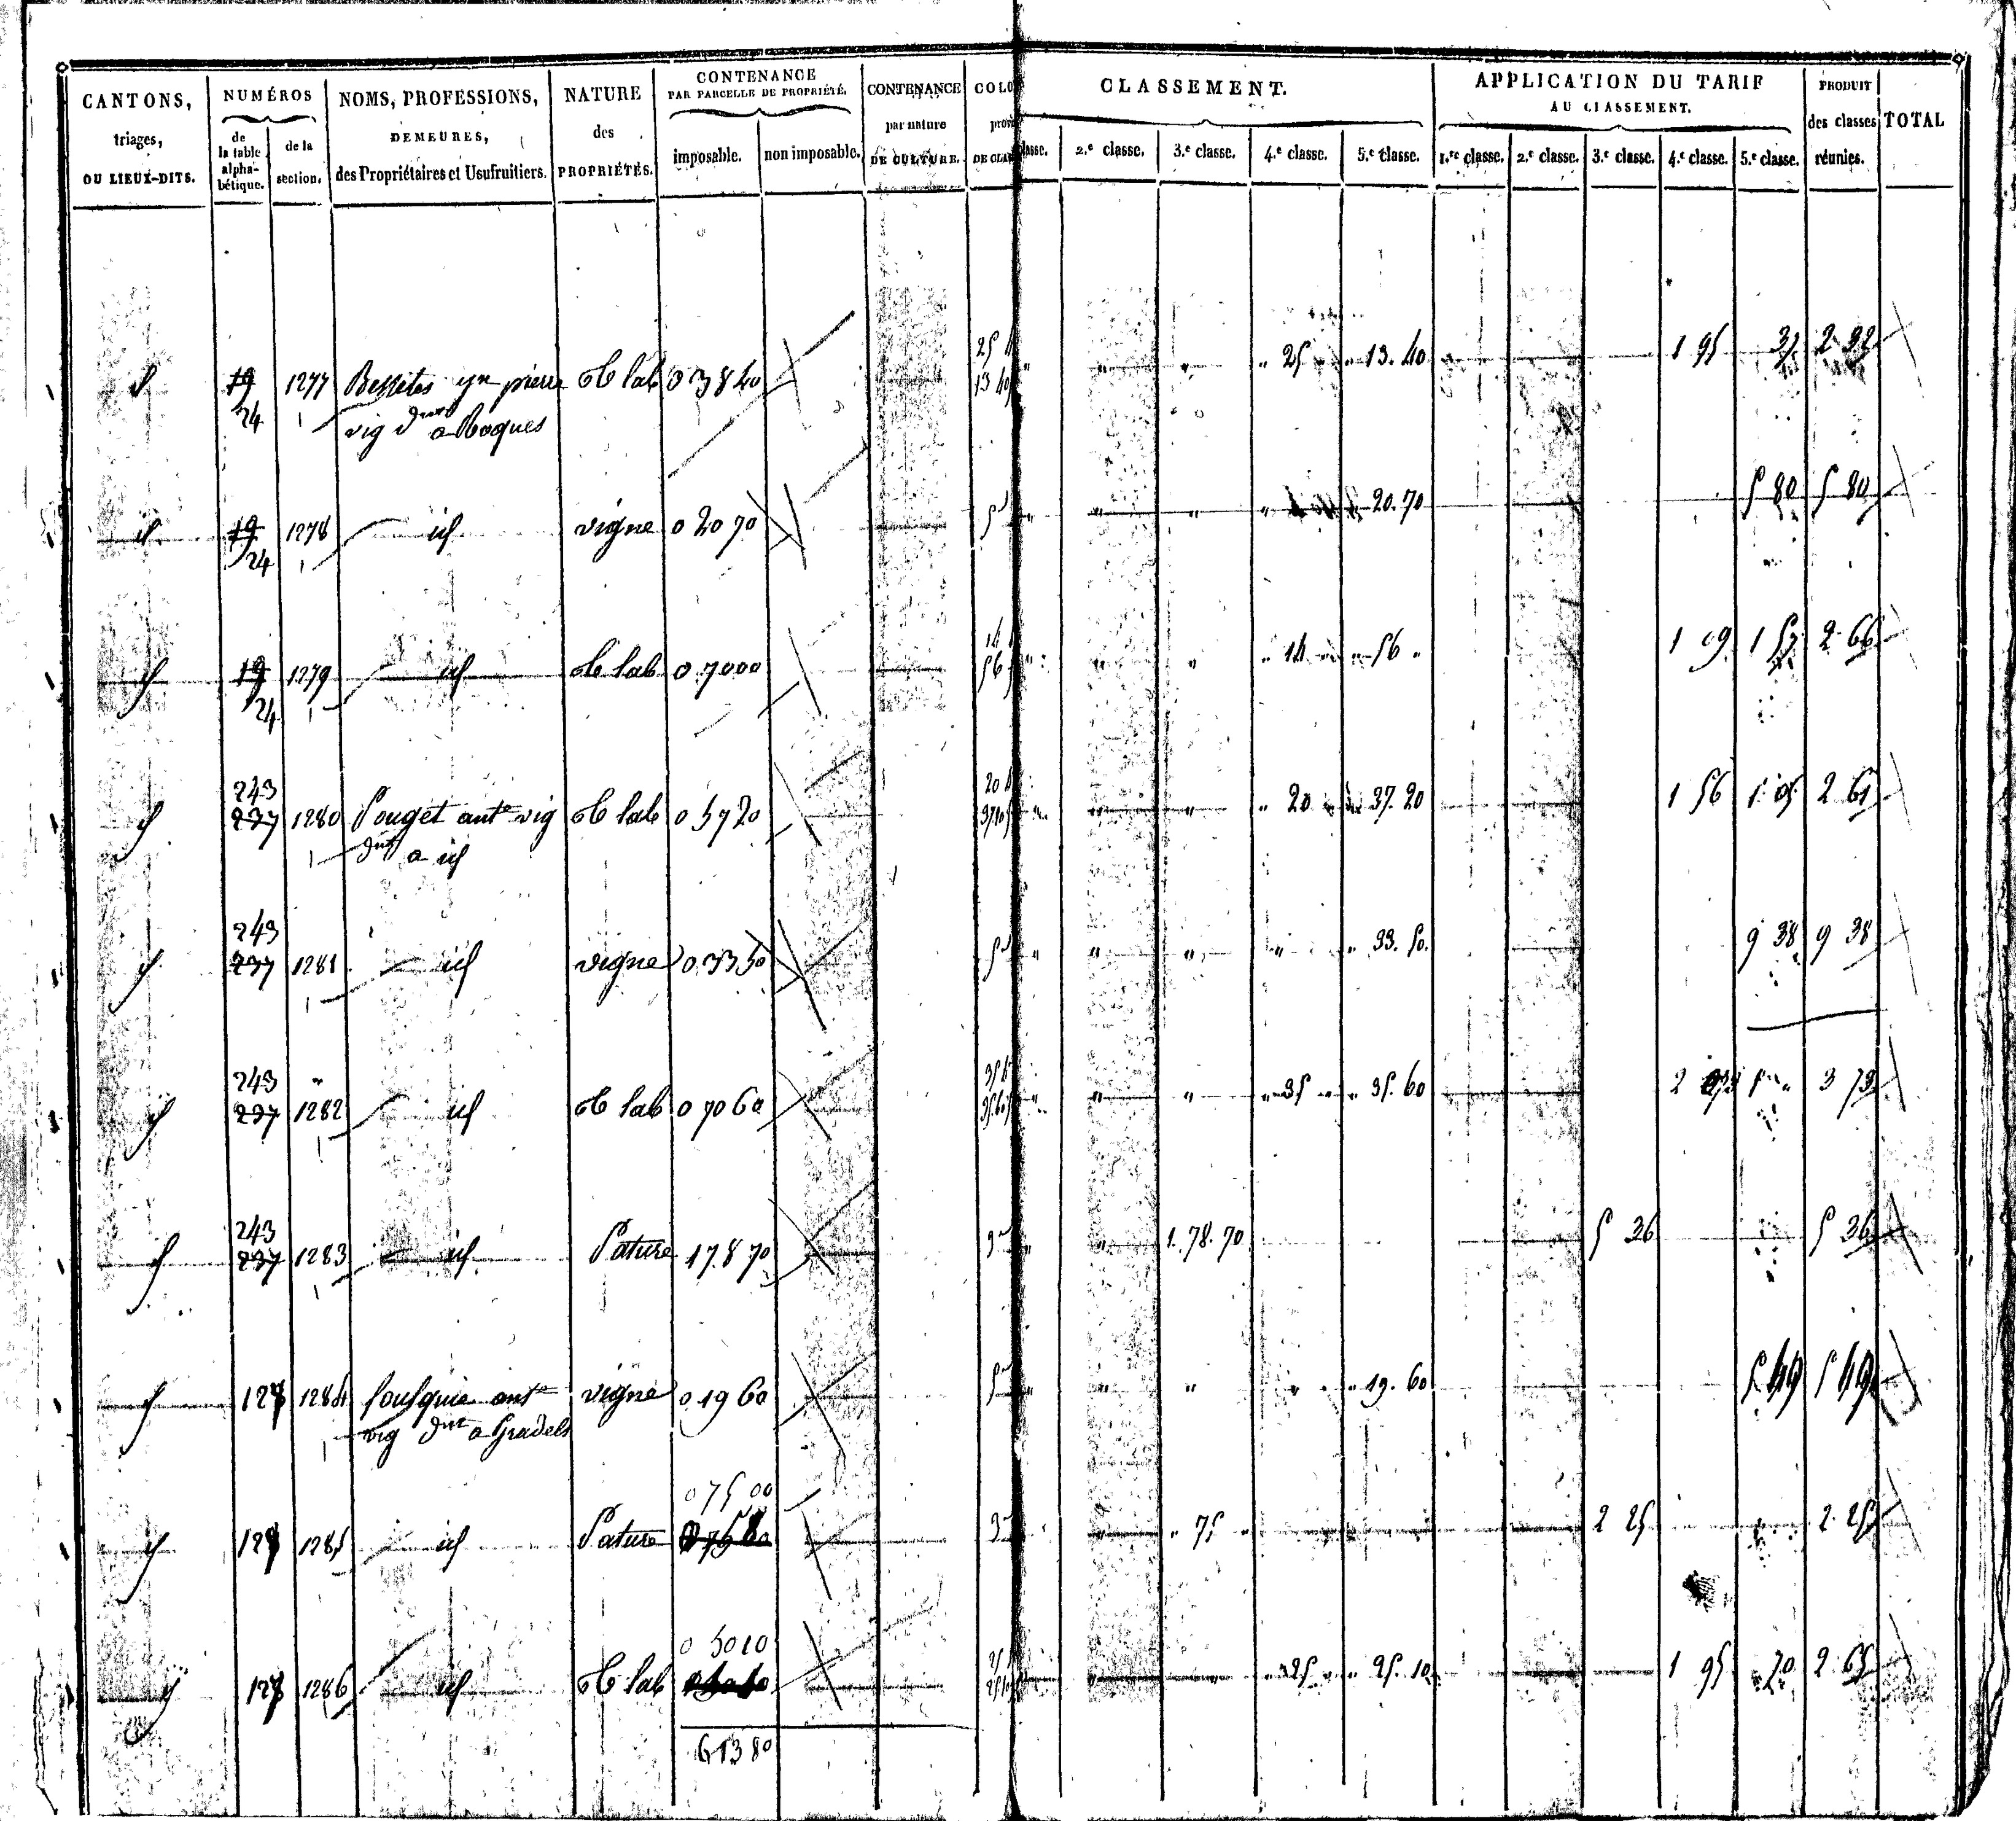 CANTONS, triages, OU LIEUX-DITS. | NUMÉROS de la table alphabétique. | de la section. | NOMS, PROFESSIONS, DEMEURES, des Propriétaires et Usufruitiers. | NATURE des PROPRIÉTÉS. | CONTENANCE PAR PARCELLE DE PROPRIÉTÉ. imposable. | non imposable. | CONTENANCE par nature DE CULTURE. | CLASSEMENT. 2.e classe. | 3.e classe. | 4.e classe. | 5.e classe. | APPLICATION DU TARIF AU CLASSEMENT. 1.re classe. | 2.e classe. | 3.e classe. | 4.e classe. | 5.e classe. | PRODUIT des classes réunies. | TOTAL
id 19 24 1277 pierre lab 0 38 40 " " 25 " " 13. 40 1 95 37 2 32
vig dnt a Roques
id 19 24 1278 id vigne 0 20 70 " " " 20. 70 5 80 5 80
id 19 24 1279 id lab 0 70 00 " " " 14 " " 56 " 1 09 1 57 2 66
243
id 237 1280 Pouget ant vig lab 0 57 20 " " " 20 " 37. 20 1 56 1 05 2 61
dnt a id
243
id 237 1281 id vigne 0 33 50 " " " " " 33. 50. 9 38 9 38
243
id 237 1282 id lab 0 70 60 " " " 35 " " 35. 60 2 73 1 " " 3 73
243
id 237 1283 id Pature 1 78 70 " " 1. 78. 70 5 36 5 36
id 127 1284 ant vigne 0 19 60 " " " " 19. 60 5 49 5 49
vig dnt a Gradels
0 75 00
id 127 1285 id Pature " 75 " 2 25 2 25
0 50 10
id 127 1286 id lab " " " 25 " " 25. 10 1 95 70 2 65
6 13 80